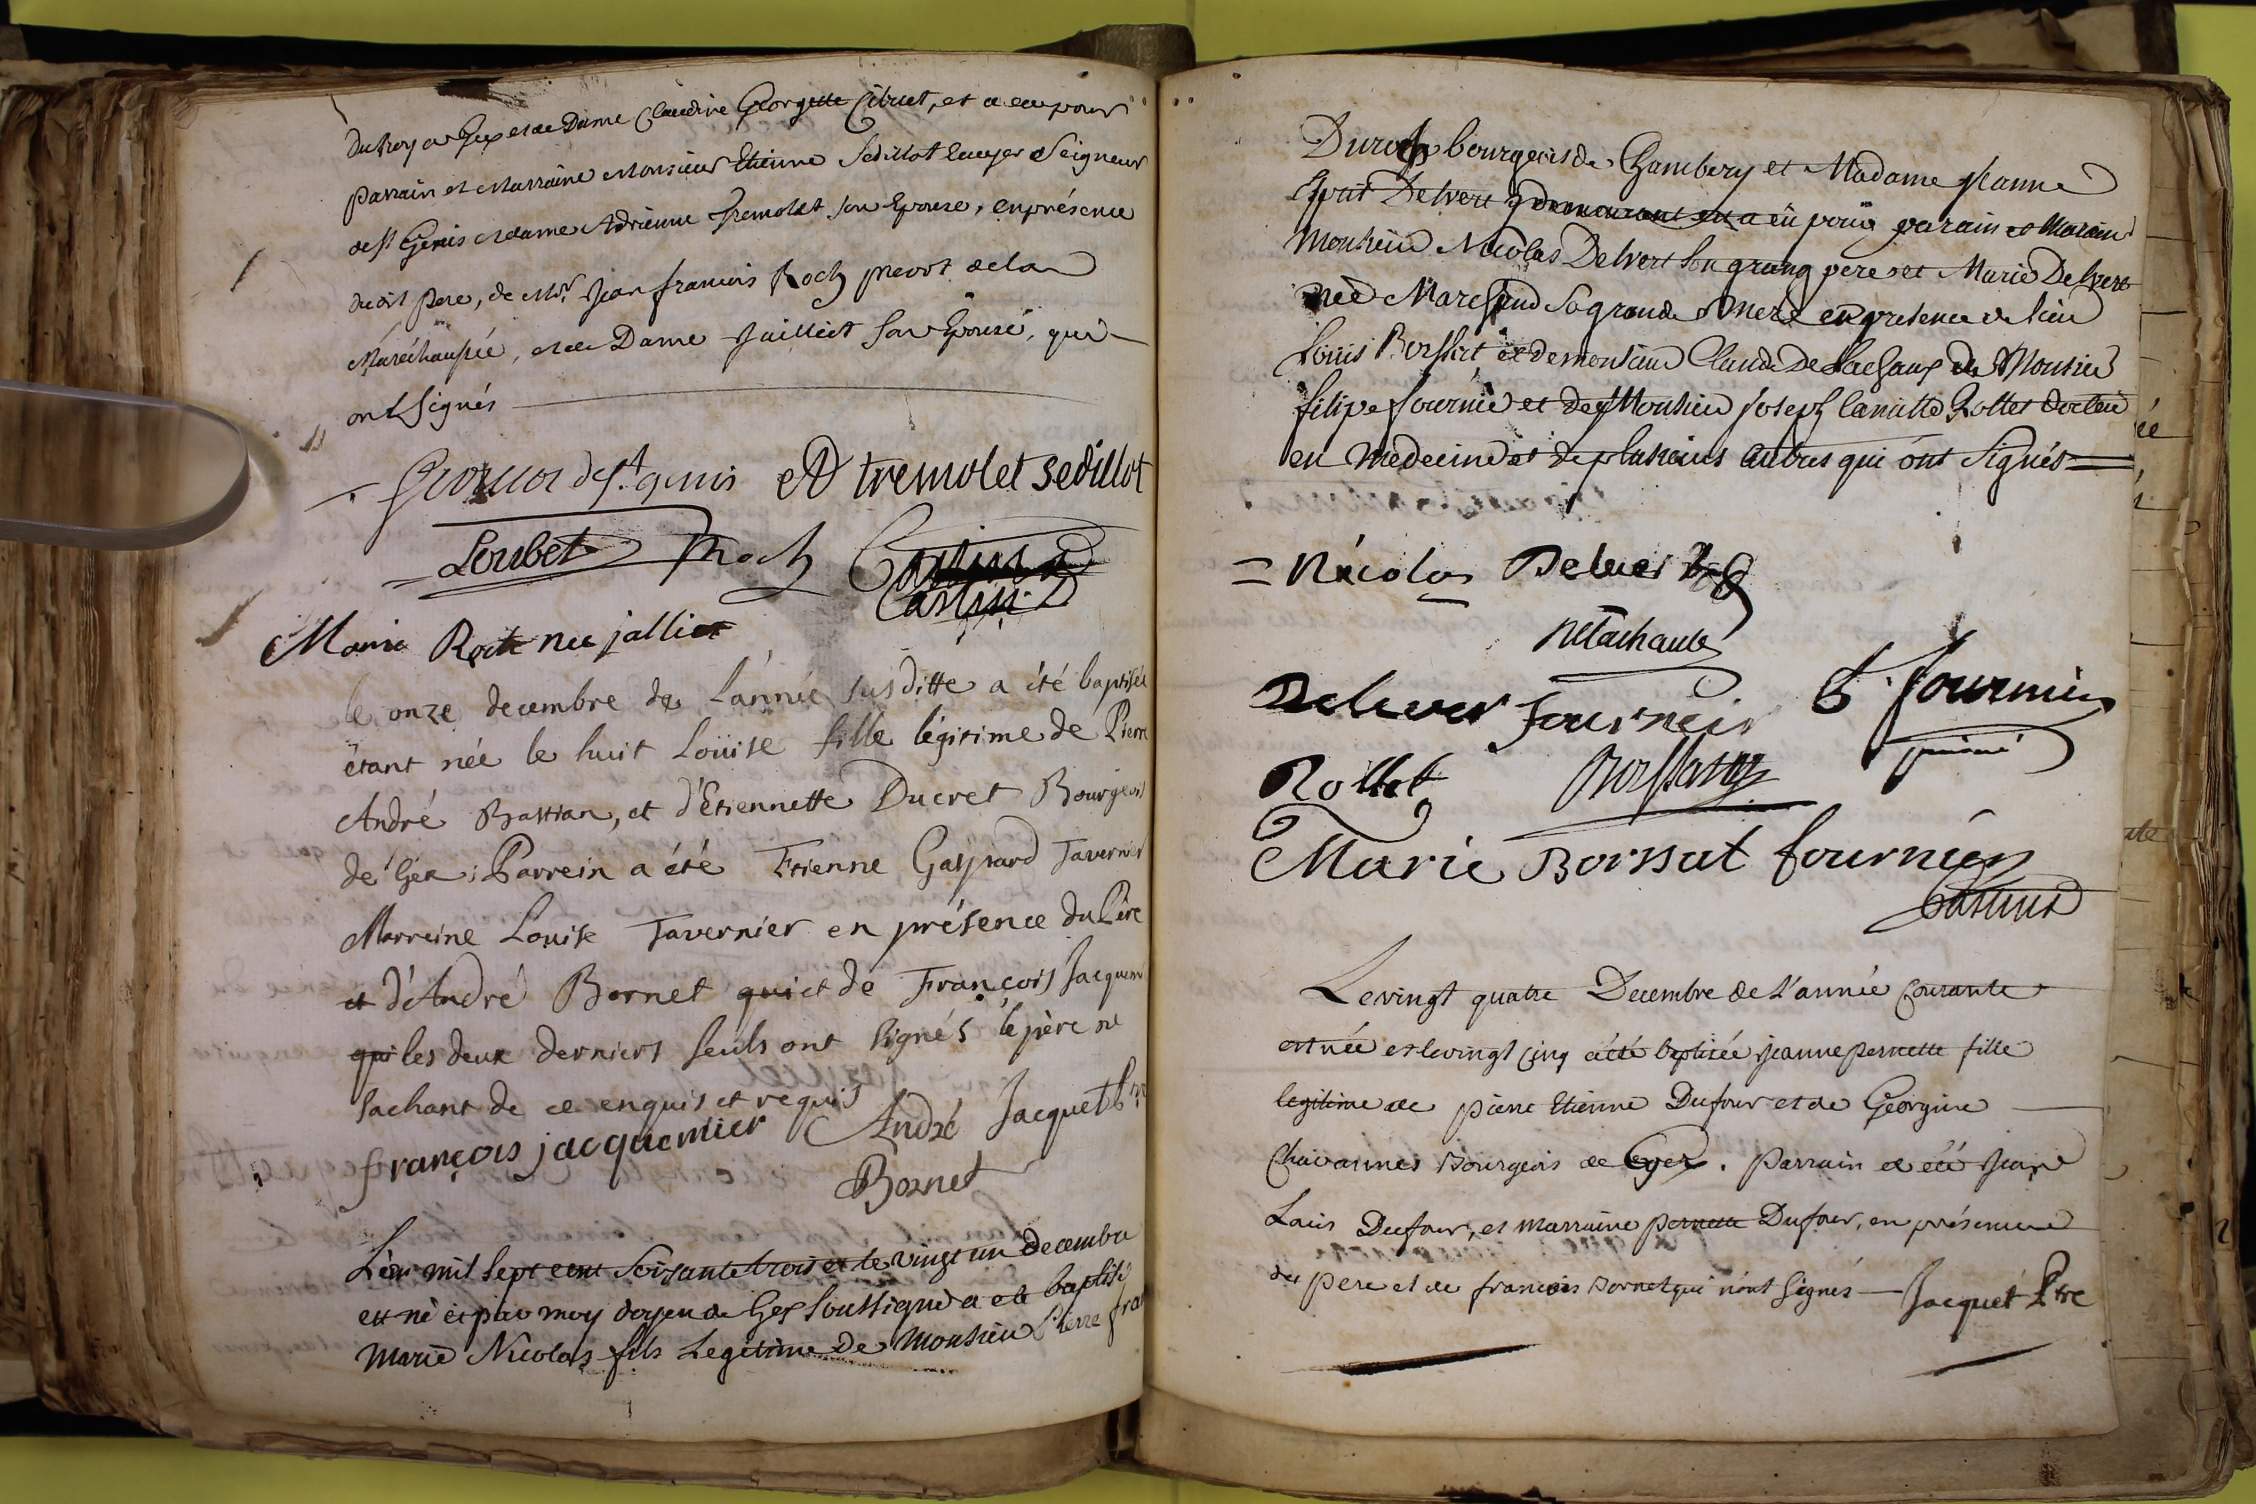 du Roy a Gex et de Dame Claudine Georgette Cibuet, et a eu pour
parrain et Marraine Monsieur Etienne Sedillot Ecuyer Seigneur
de St Genis et dame Adrienne Tremolet son Epouse, en présence
dudit pere, de Mr. Jean françois Roch prevot de la
Maréchaussée, et de Dame Jailliet son Epouse, qui
ont signés
de st. genis A tremolet sedillot
Loubet Roch Castin
Castin
Marie Roch nee jalliet
le onze decembre de l'année susditte a été baptisée
étant née le huit Loüise fille légitime de Pierre
André Bastian, et d'Etiennette Ducret Bourgeois
de Gex; Parrein a été Etienne Gaspard Tavernier
Marreine Louise Tavernier en présence du Père
et d'André Bornet qui et de François Jacquem
qui les deux derniers seuls ont signés le père ne
sachant de ce enquis et requis
françois jacquemier André Jacquet
Bornet
L'an mil sept cent soixante trois et le vingt un decembre
est né et par moy doyen de Gex soussigné a ete baptisé
Marie Nicolas fils Legitime de Monsieur Pierre fra
Duroch bourgeois de Chambery et Madame Jeanne
Delvert a eü pour parain et Maraine
Monsieur Nicolas Delvert son grang pere et Marie Delvert
neè Marchand sa grande Mere en presence de sieur
Loüis Borssat et de monsieur Claude De Lachaux de Monsieur
filipe fournie et de Monsieur joseph Rollet docteur
en Medecine et de plusieurs autres qui ont signés
= Nicolas Deluer
delachaux
Deluer Fournier fournier
Rollet Borssat
Marie Borssat fournier
Castin
Le vingt quatre Decembre de l'année Courante
est née et le vingt cinq a été baptisée jeanne pernette fille
legitime de pierre Etienne Dufour et de Georgine
Chavannes Bourgeois de Gex. Parrain a été Jean
Louis Dufour, et marraine pernette Dufour, en présence
du pere et de francois Bornet qui n'ont signés — Jacquet Ptre